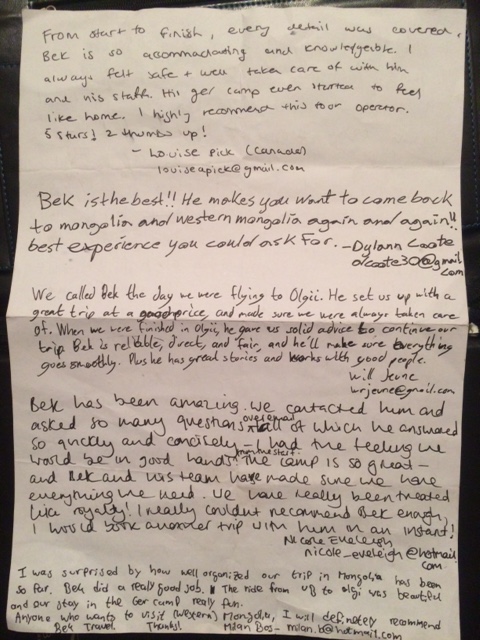 From start to finish, every detail was covered.
Bek is so accommadating and knowledgeable. I
always felt safe + well taken care of with him
and his staff. His ger camp even started to feel
like home. I highly recommend this tour operator.
5 stars! 2 thumbs up!
- Louise Pick (Canada)
louiseapick@gmail.com
Bek is the best!! He makes you want to come back
to mongolia and western mongolia again and again!!
best experience you could ask for. - Dylann Coote
dlcoote30@gmail
.com
We called Bek the day we were flying to Olgii. He set us up with a
great trip at a good price, and made sure we were always taken care
of. When we were finished in Olgii, he gave us solid advice to continue our
trip. Bek is reliable, direct, and fair, and he'll make sure everything
goes smoothly. Plus he has great stories and works with good people.
Will Jeune
wrjeune@gmail.com
Bek has been amazing. We contacted him and
asked so many questions over email - all of which he answered
so quickly and concisely - I had the feeling we
would be in good hands from the start. The camp is so great -
and Bek and his team have made sure we have
everything we need. We have really been treated
like royalty! I really couldn't recommend Bek enough,
I would book another trip with him in an instant!
Nicole Eveleigh
nicole_eveleigh@hotmail
.com
I was surprised by how well organized our trip in Mongolia has been
so far. Bek did a really good job. The ride from UB to Olgi was beautiful
and our stay in the Ger camp really fun.
Anyone who wants to visit (western) Mongolia, I will definetely recommend
Bek Travel. Thanks! Milan Bos - milan